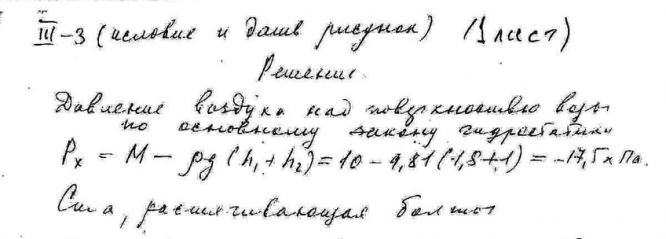 III-3 (условие и дать рисунок) (1 лист)
Решение
Давление воздуха над поверхностью воды
по основному закону гидростатики
Px = M - ρg (h1 + h2) = 10 - 9,81 (1,8+1) = -17,5 кПа.
Сила, растягивающая болты